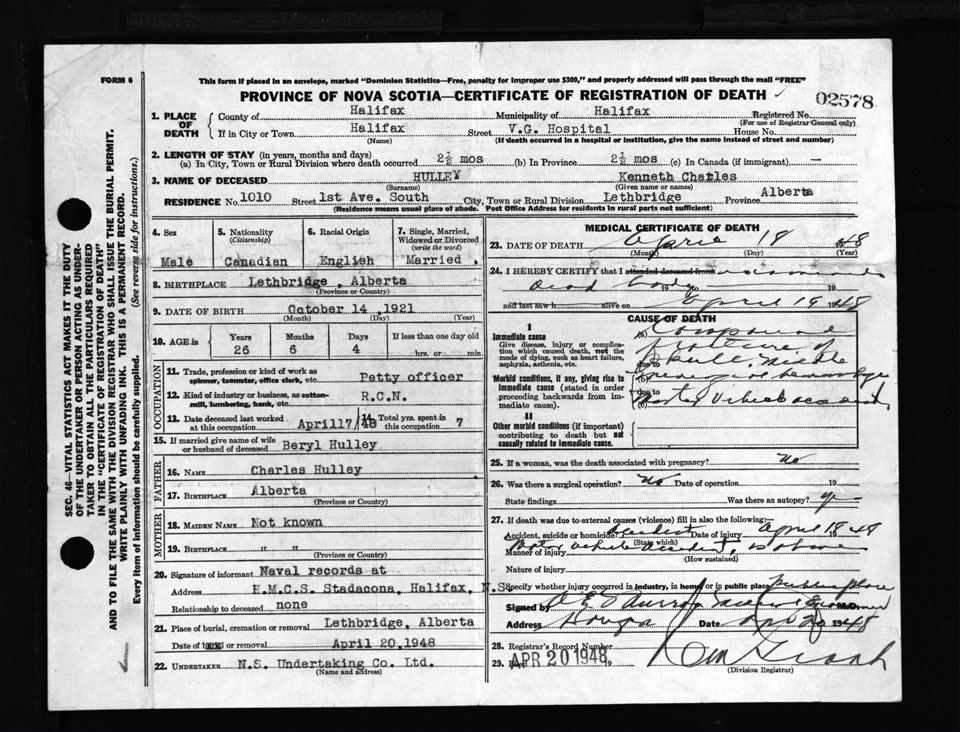 FORM 6
This form if placed in an envelope, marked "Dominion Statistics—Free, penalty for improper use $300," and properly addressed will pass through the mail "FREE"
PROVINCE OF NOVA SCOTIA—CERTIFICATE OF REGISTRATION OF DEATH
02578
1. PLACE OF DEATH
County of Halifax Municipality of Halifax Registered No.
(For use of Registrar General only)
If in City or Town Halifax Street V.G. Hospital House No.
(Name) (If death occurred in a hospital or institution, give the name instead of street and number)
2. LENGTH OF STAY (in years, months and days)
(a) In City, Town or Rural Division where death occurred 2½ mos (b) In Province 2½ mos (c) In Canada (if immigrant) —
3. NAME OF DECEASED HULLEY Kenneth Charles
(Surname) (Given name or names)
RESIDENCE No 1010 Street 1st Ave. South City, Town or Rural Division Lethbridge Province Alberta
(Residence means usual place of abode. Post Office Address for residents in rural parts not sufficient)
4. Sex Male
5. Nationality (Citizenship) Canadian
6. Racial Origin English
7. Single, Married, Widowed or Divorced (write the word) Married.
8. BIRTHPLACE Lethbridge, Alberta
(Province or Country)
9. DATE OF BIRTH October 14, 1921
(Month) (Day) (Year)
10. AGE in Years 26 Months 6 Days 4 If less than one day old hrs. or min.
OCCUPATION
11. Trade, profession or kind of work as spinner, teamster, office clerk, etc. Petty officer
12. Kind of industry or business, as cotton-mill, lumbering, bank, etc. R.C.N.
13. Date deceased last worked at this occupation April 17/48
14. Total yrs. spent in this occupation 7
15. If married give name of wife or husband of deceased Beryl Hulley
FATHER
16. NAME Charles Hulley
17. BIRTHPLACE Alberta
(Province or Country)
MOTHER
18. MAIDEN NAME Not known
19. BIRTHPLACE " "
(Province or Country)
20. Signature of informant Naval records at
Address H.M.C.S. Stadacona, Halifax, N.S.
Relationship to deceased none
21. Place of burial, cremation or removal Lethbridge, Alberta
Date of burial or removal April 20, 1948
22. UNDERTAKER N.S. Undertaking Co. Ltd.
(Name and address)
MEDICAL CERTIFICATE OF DEATH
23. DATE OF DEATH April 18 1948
(Month) (Day) (Year)
24. I HEREBY CERTIFY that I attended deceased from
dead body 19 19
and last saw h alive on April 19 1948
CAUSE OF DEATH
I
Immediate cause
Give disease, injury or complication which caused death, not the mode of dying, such as heart failure, asphyxia, asthenia, etc.
(a) Compound
fracture of
skull, middle
due to
Morbid conditions, if any, giving rise to immediate cause (stated in order proceeding backwards from immediate cause).
(b) hemorrhage
due to
(c) Motor Vehicle accident
II
Other morbid conditions (if important) contributing to death but not causally related to immediate cause.
25. If a woman, was the death associated with pregnancy? no
26. Was there a surgical operation? No Date of operation 19
State findings Was there an autopsy?
27. If death was due to external causes (violence) fill in also the following:—
Accident, suicide or homicide? Accident Date of injury April 18 1948
(State which)
Manner of injury Motor vehicle accident,
(How sustained)
Nature of injury
Specify whether injury occurred in industry, in home or in public place Public place
Signed by M.D.
Address Date Apr 20 1948
28. Registrar's Record Number
29. Filed APR 20 1948
(Division Registrar)
SEC. 46—VITAL STATISTICS ACT MAKES IT THE DUTY
OF THE UNDERTAKER OR PERSON ACTING AS UNDER-
TAKER TO OBTAIN ALL THE PARTICULARS REQUIRED
IN THE "CERTIFICATE OF REGISTRATION OF DEATH"
AND TO FILE THE SAME WITH THE DIVISION REGISTRAR WHO SHALL ISSUE THE BURIAL PERMIT.
WRITE PLAINLY WITH UNFADING INK. THIS IS A PERMANENT RECORD.
Every item of information should be carefully supplied. (See reverse side for instructions.)